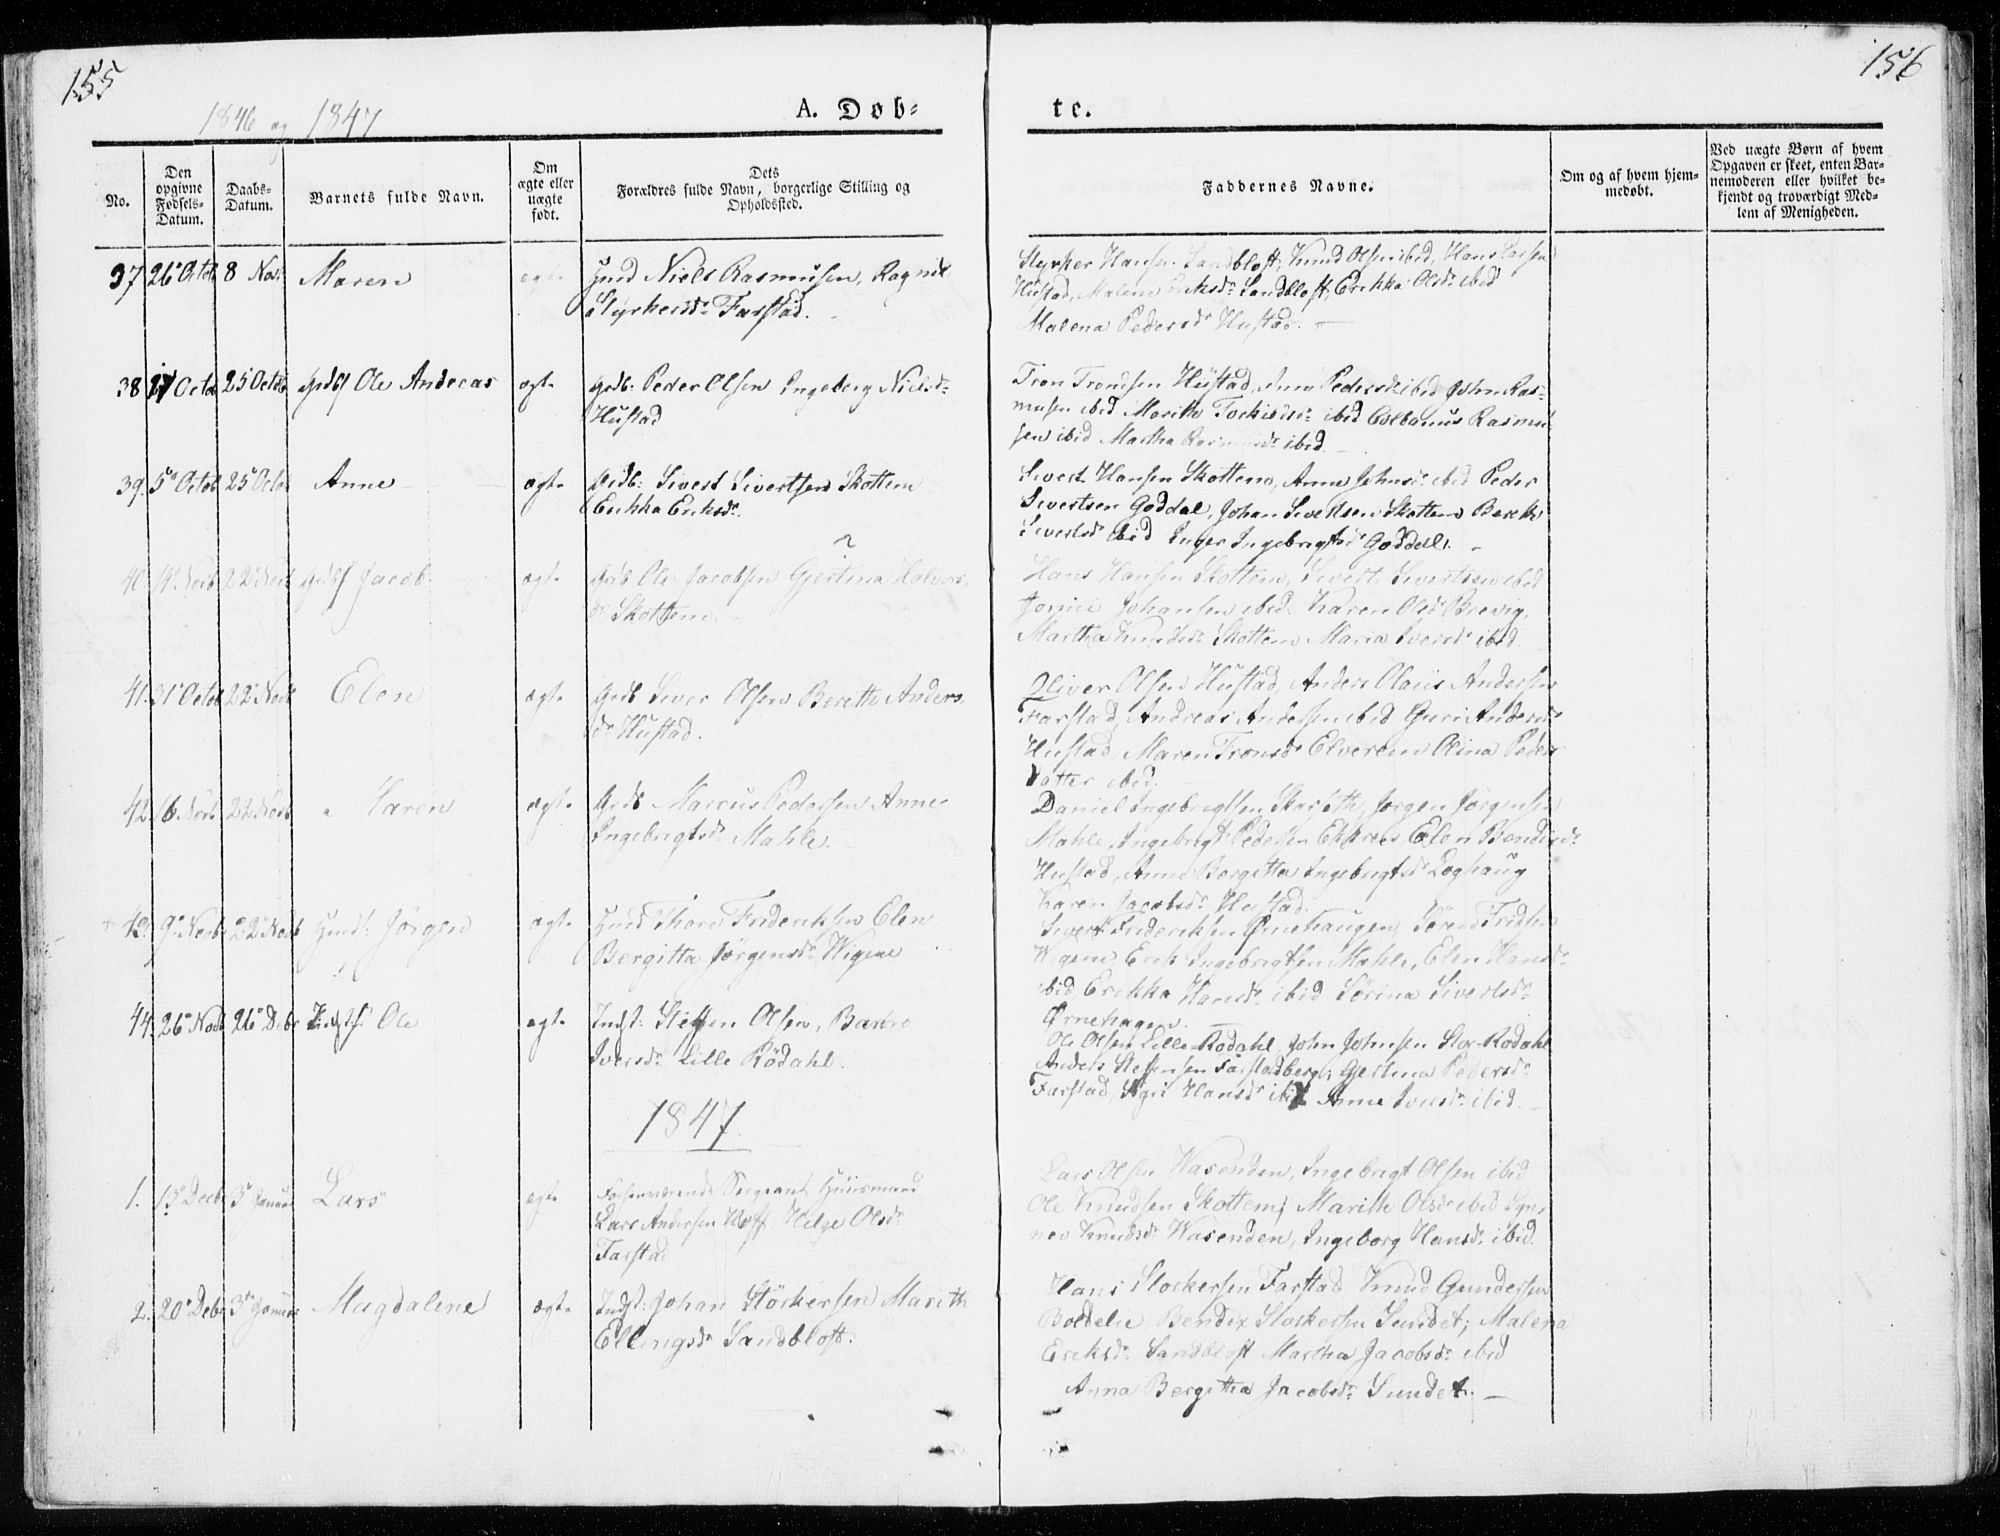 155
156
1846 og 1847
A. Døb-
te.
No.
Den opgivne Fødsels-Datum.
Daabs-Datum.
Barnets fulde Navn.
Om ægte eller uægte født.
Dets
Forældres fulde Navn, borgerlige Stilling og
Opholdssted.
Faddernes Navne.
Om og af hvem hjem-
medøbt.
Ved uægte Børn af hvem
Opgaven er skeet, enten Bar-
nemoderen eller hvilket be-
kjendt og troværdigt Med-
lem af Menigheden.
37 26 Octob 8 Nov Maren ægte Huusmd Niels Rasmusen, Ragnil
Styrkersdr Farstad.
Styrker Hansen Sandbloft, Knud Olsen ibid, Hans Larsen
Hustad, Malene Eriksdr Sandbloft, Erikka Olsdr ibid
Malena Pedersdr Hustad. —
38 17 Octob 25 Octob Ole Andreas ægte Grdb: Peder Olsen Ingeborg Nielsdr
Hustad
Tron Tronsen Hustad, Anne Pedersdr ibid John Ras-
musen ibid Marith ibid Rasmu-
sen ibid Martha ibid
39. 5te Octob 25 Octob Anne ægte Grdb: Sivert Sivertsen Skottem
Erikka Eriksdr.
Sivert Hansen Skottem, Anne Johnsdr ibid Peder
Sivertsen Goddal, Johan Sivertsen Skottem Berethe
Sivertsdr ibid Inger Ingebrigtsdr Goddal. —
40. 14 Novb 22 Novb Jacob. ægte Grdb Ole Jacobsen Gjertina Halvors-
dr Skottem.
Hans Hansen Skottem, Sivert Sivertsen ibid
Johansen ibid. Karen Olsdr Brevig,
Martha Knudsdr Skottem Maria Iversdr ibid
41. 21 Octob 22 Novb Elen ægte Grdb Siver Olsen Berethe Anders-
dr Hustad.
Oliver Olsen Hustad, Anders Olaus Andersen
Farstad, Andreas Andersen ibid Guri Andersdr
Hustad, Maren Tronsdr Elverom Olina Peders
datter ibid.
42. 16 Novb 22 Novb Maren ægte Grdb Marcus Pedersen Anne
Ingebrigtsdr Mahle.
Daniel Ingebrigtsen Jørgen Jørgensen
Mahle, Ingebrigt Pedersen Elen Bendixdr
Hustad, Anne Bergitta Ingebrigtsdr
Karen Jacobsdr Hustad.
42. 9 Novb 22 Novb Jørgen ægte Thore Frideriksen Elen
Bergitta Jørgensdr Wigene
Sivert Frideriksen Ørnehaugen, Søren Fridsen
Wigene Erik Ingebrigtsen Mahle, Elen Hansdr
ibid Erikka Hansdr ibid Sørina Sivertsdr
Ørnehagen.
44. 26 Novb 26 Debr Ole ægte Indst: Steffen Olsen, Barbro
Iversdr Lille Rødahl.
Ole Olsen Lille Rødahl, John Johnsen Stor-Rødahl
Anders Steffensen Farstadberg, Gjertina Pedersdr
Farstad, Sigri Hansdr ibid Anne Iversdr ibid.
1847.
1. 13 Decbr 3 Januar Lars ægte Forhenværende Sergeant Huusmand
Lars Andersen Hoff, Helge Olsdr
Farstad
Lars Olsen Wasenden, Ingebrigt Olsen ibid
Ole Knudsen Skottem, Marith Olsdr ibid Syn-
nev Knudsdr Wasenden, Ingeborg Hansdr ibid.
2. 20 Debr 3 Januar Magdalene ægte Indst: Johan Störkersen Marith
Ellingsdr Sandbloft.
Hans Storkersen Farstad Knud Gundersen
Boldelie, Bendix Storkersen Sundet, Malena
Eriksdr Sandbloft Martha Jacobsdr ibid
Anna Bergitha Jacobsdr Sundet. —